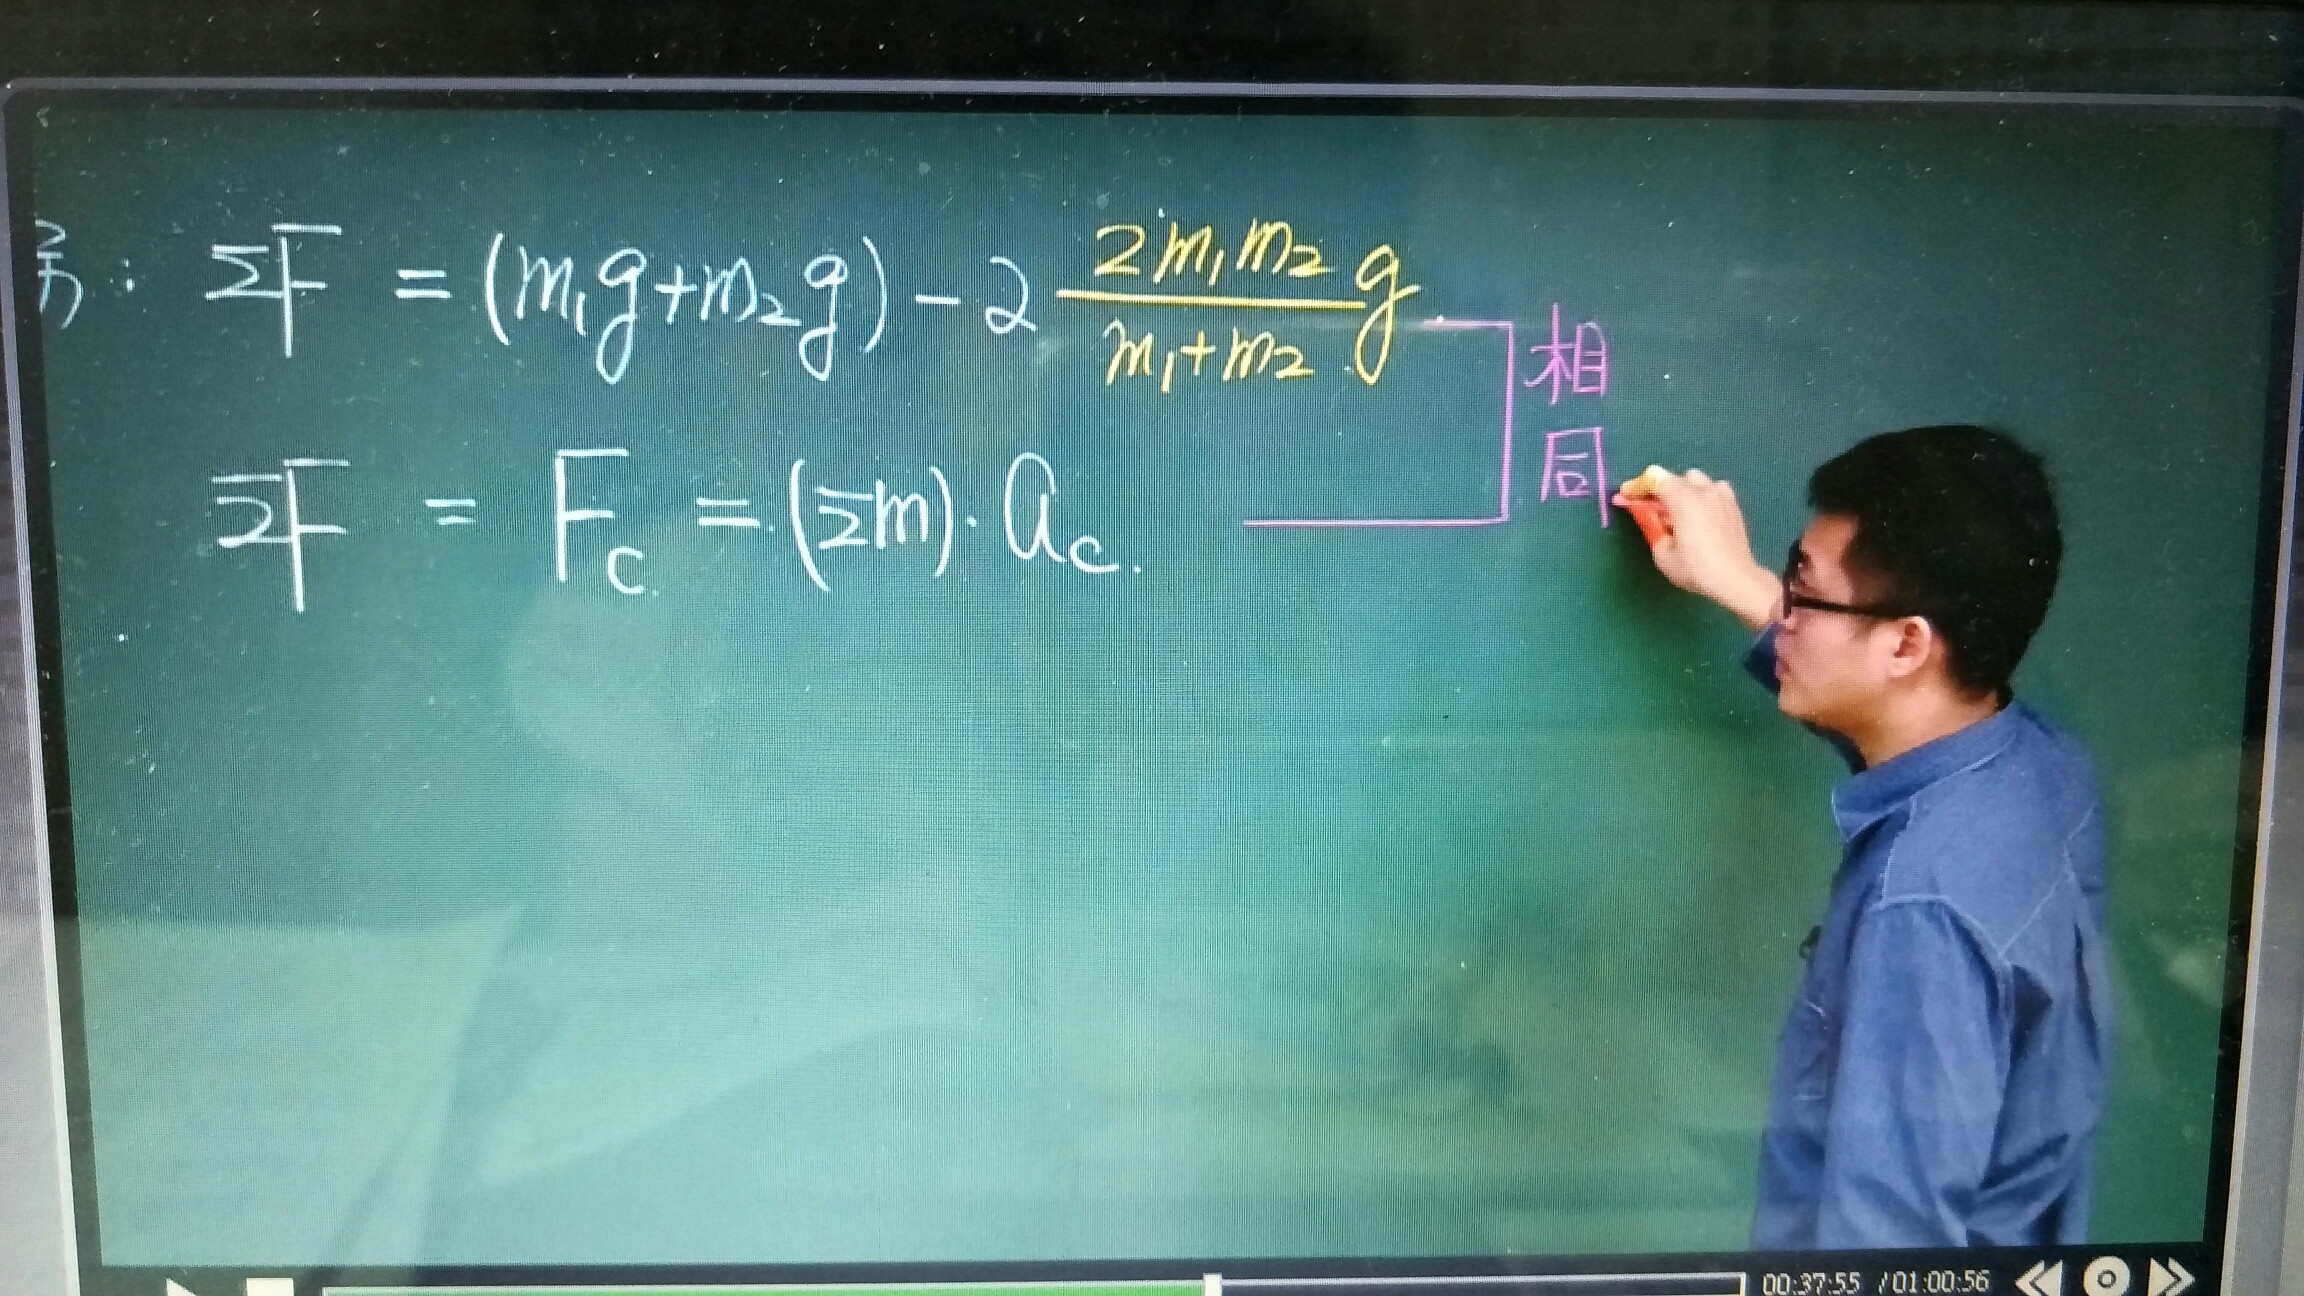 ΣF = (m₁g+m₂g) - 2 2m₁m₂/m₁+m₂ g
相同
ΣF = Fc = (Σm)·ac.
00:37:55 / 01:00:56